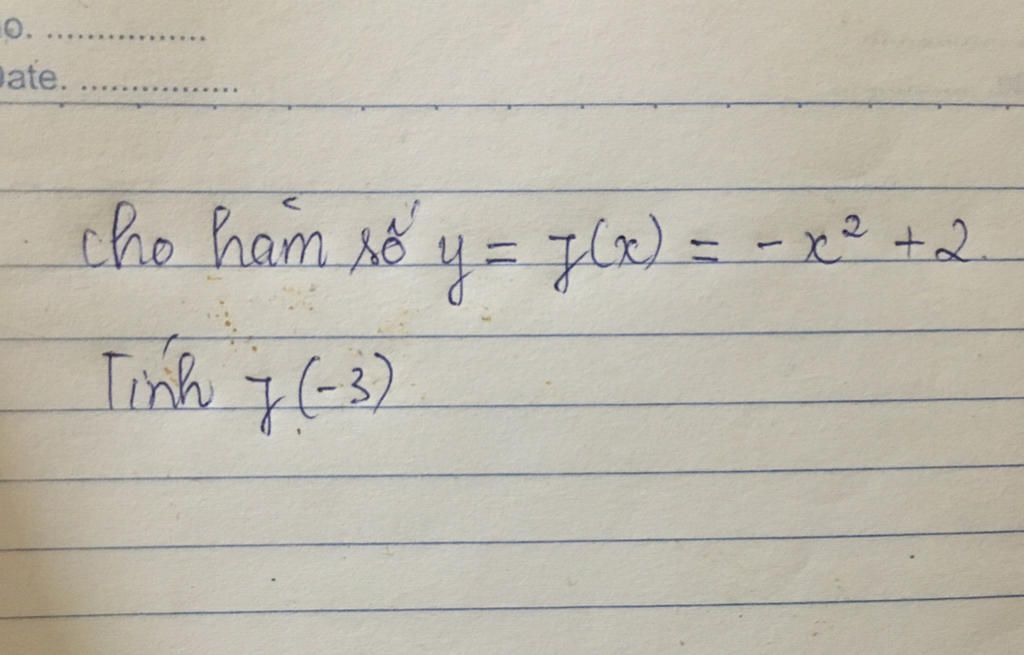 no. ................
Date. ................
cho hàm số y = f(x) = -x² + 2.
Tính f(-3)